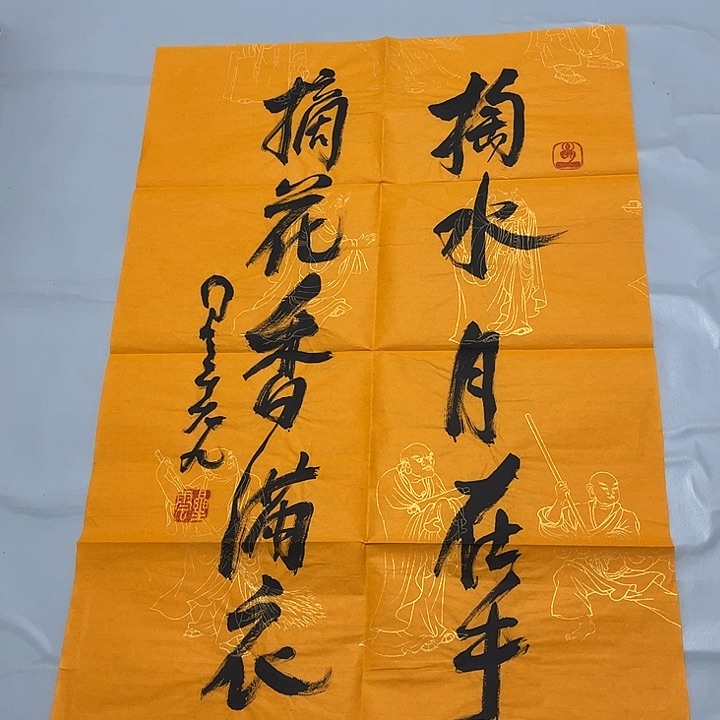 掬水月在手
摘花香满衣